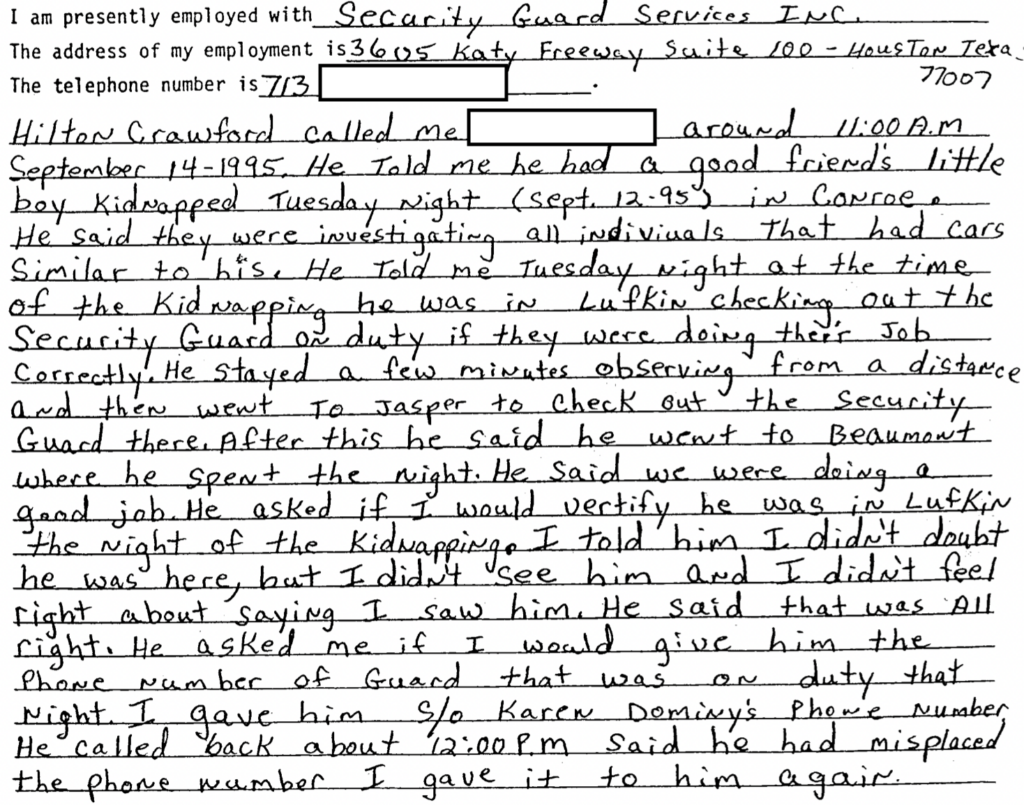 I am presently employed with Security Guard Services INC.
The address of my employment is 3605 Katy Freeway Suite 100 - Houston Texa
The telephone number is 713 . 77007
Hilton Crawford called me around 11:00 A.m
September 14-1995. He Told me he had a good friend's little
boy Kidnapped Tuesday Night (Sept. 12-95) in Conroe.
He said they were investigating all indiviuals That had cars
Similar to his. He Told me Tuesday Night at the time
of the Kidnapping he was in Lufkin checking out the
Security Guard on duty if they were doing their Job
Correctly. He stayed a few minutes observing from a distance
and then went To Jasper to Check out the Security
Guard there. After this he said he went to Beaumont
where he spent the night. He Said we were doing a
good job. He asked if I would vertify he was in Lufkin
the Night of the Kidnapping. I told him I didn't doubt
he was here, but I didn't see him and I didn't feel
right about saying I saw him. He said that was All
right. He asked me if I would give him the
Phone Number of Guard that was on duty that
Night. I gave him S/o Karen Dominy's Phone Number
He called back about 12:00 P.m Said he had misplaced
the phone number I gave it to him again.